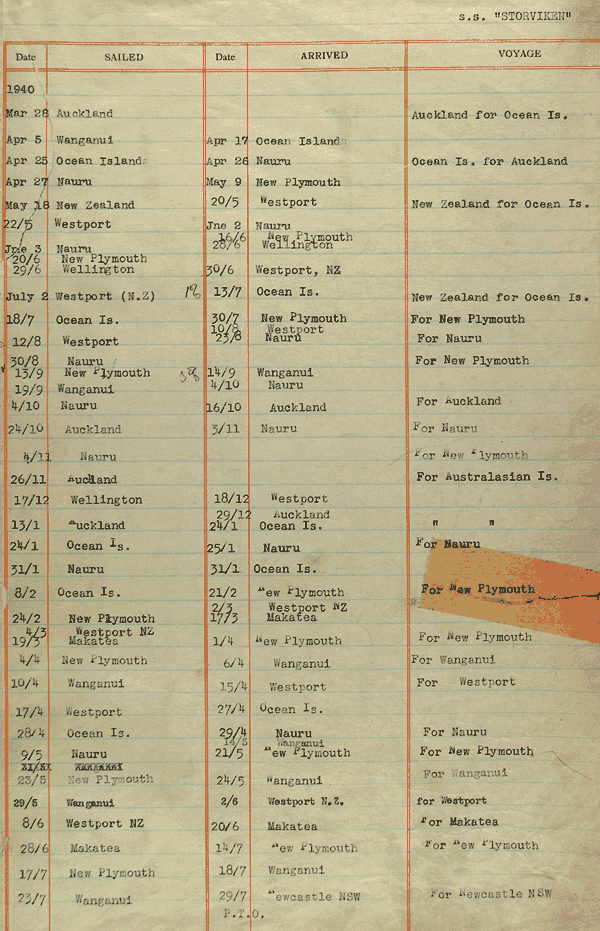 s.s. "STORVIKEN"
Date SAILED Date ARRIVED VOYAGE
1940
Mar 28 Auckland Auckland for Ocean Is.
Apr 5 Wanganui Apr 17 Ocean Island
Apr 25 Ocean Island Apr 26 Nauru Ocean Is. for Auckland
Apr 27 Nauru May 9 New Plymouth
May 18 New Zealand 20/5 Westport New Zealand for Ocean Is.
22/5 Westport Jne 2 Nauru
16/6 New Plymouth
Jne 3 Nauru 28/6 Wellington
20/6 New Plymouth
29/6 Wellington 30/6 Westport, NZ
July 2 Westport (N.Z) 13/7 Ocean Is. New Zealand for Ocean Is.
18/7 Ocean Is. 30/7 New Plymouth For New Plymouth
10/8 Westport
12/8 Westport 23/8 Nauru For Nauru
30/8 Nauru For New Plymouth
13/9 New Plymouth 14/9 Wanganui
19/9 Wanganui 4/10 Nauru
4/10 Nauru 16/10 Auckland For Auckland
24/10 Auckland 3/11 Nauru For Nauru
4/11 Nauru For New Plymouth
26/11 Auckland For Australasian Is.
17/12 Wellington 18/12 Westport
29/12 Auckland
13/1 Auckland 24/1 Ocean Is. " "
24/1 Ocean Is. 25/1 Nauru For Nauru
31/1 Nauru 31/1 Ocean Is.
8/2 Ocean Is. 21/2 New Plymouth For New Plymouth
2/3 Westport NZ
24/2 New Plymouth 17/3 Makatea
4/3 Westport NZ
19/3 Makatea 1/4 New Plymouth For New Plymouth
4/4 New Plymouth 6/4 Wanganui For Wanganui
10/4 Wanganui 15/4 Westport For Westport
17/4 Westport 27/4 Ocean Is.
28/4 Ocean Is. 29/4 Nauru For Nauru
14/5 Wanganui
9/5 Nauru 21/5 New Plymouth For New Plymouth
23/5 New Plymouth 24/5 Wanganui For Wanganui
29/5 Wanganui 2/6 Westport N.Z. for Westport
8/6 Westport NZ 20/6 Makatea For Makatea
28/6 Makatea 14/7 New Plymouth For New Plymouth
17/7 New Plymouth 18/7 Wanganui
23/7 Wanganui 29/7 Newcastle NSW For Newcastle NSW
P.T.O.